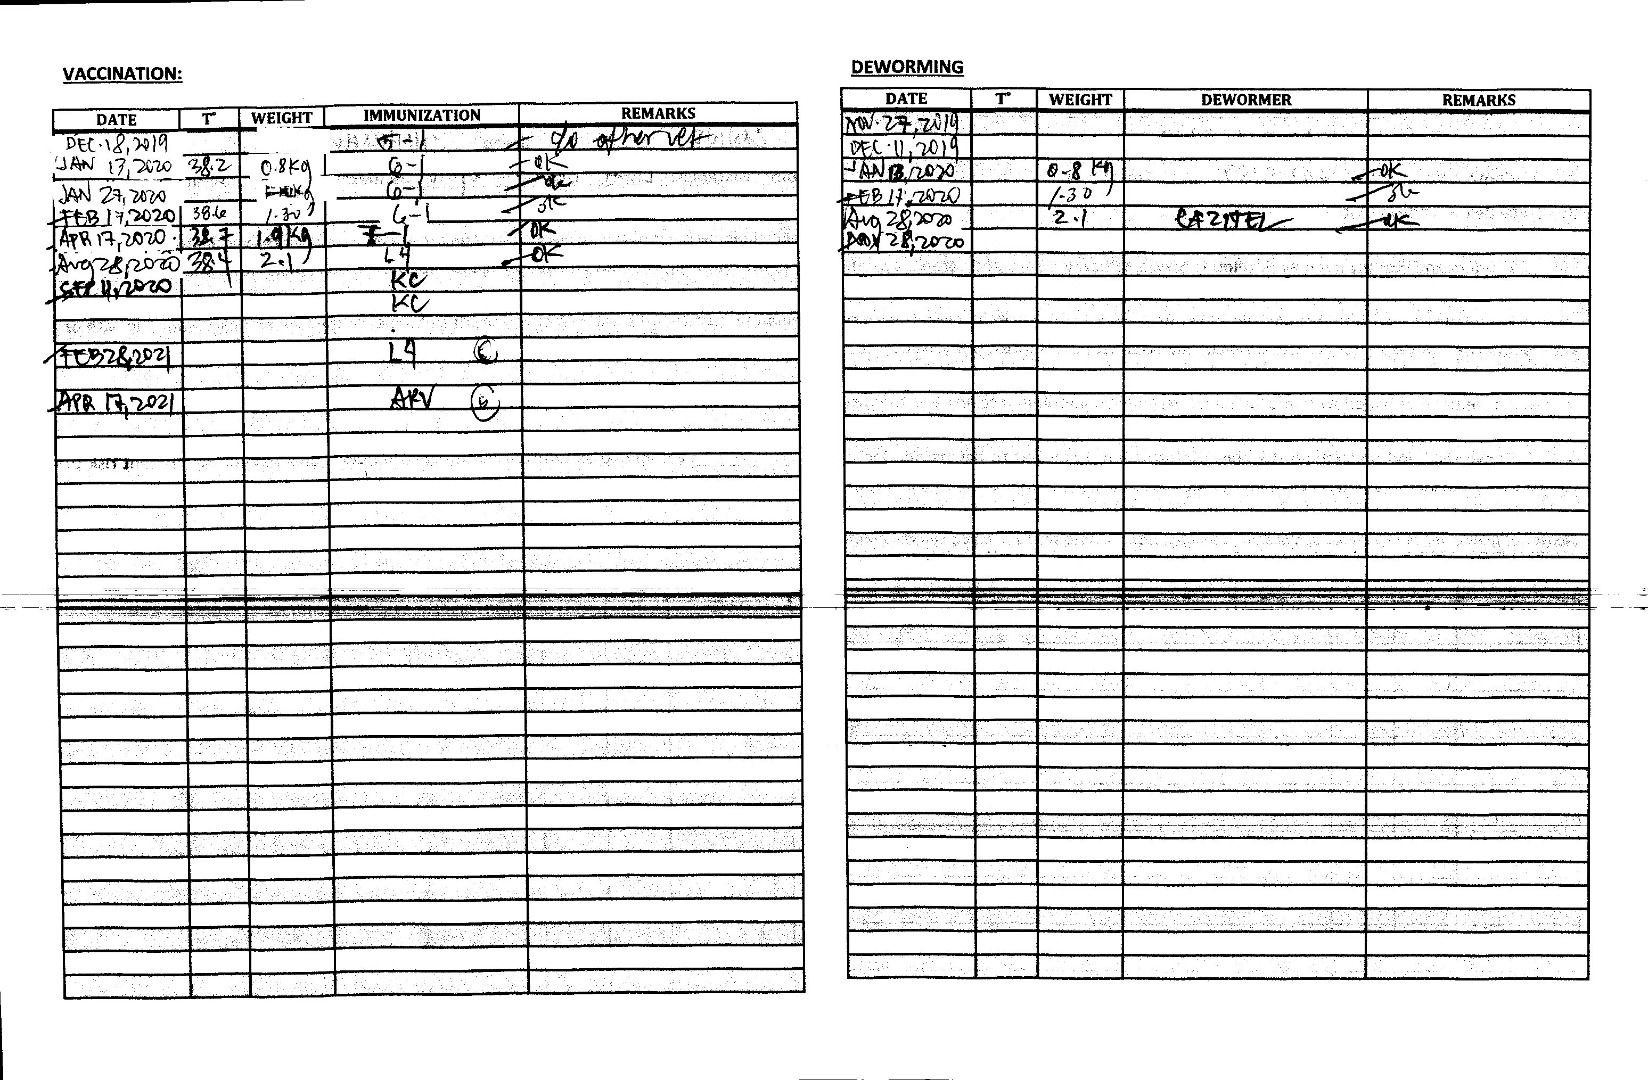 VACCINATION:
DATE T° WEIGHT IMMUNIZATION REMARKS
DEC. 18, 2019 5-1 - c/o other vet
JAN 13, 2020 38.2 0.8 Kg 6-1 - OK
JAN 27, 2020 6-1 - OK
FEB 17, 2020 38.6 1.30 6-1 - OK
APR 17, 2020 38.7 1.9 Kg -1 - OK
Aug 28, 2020 38.4 2.1 L4 - OK
SEP 11, 2020 KC
KC
FEB 28, 2021 L4
APR 17, 2021 ARV
DEWORMING
DATE T° WEIGHT DEWORMER REMARKS
NOV. 27, 2019
DEC. 11, 2019
JAN 13, 2020 0.8 Kg - OK
FEB 17, 2020 1.30 - OK
Aug 28, 2020 2.1 CAZITEL - OK
NOV 28, 2020